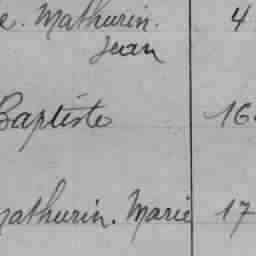 e. Mathurin. 4
Jean
Baptiste 16
Mathurin. Marie 17